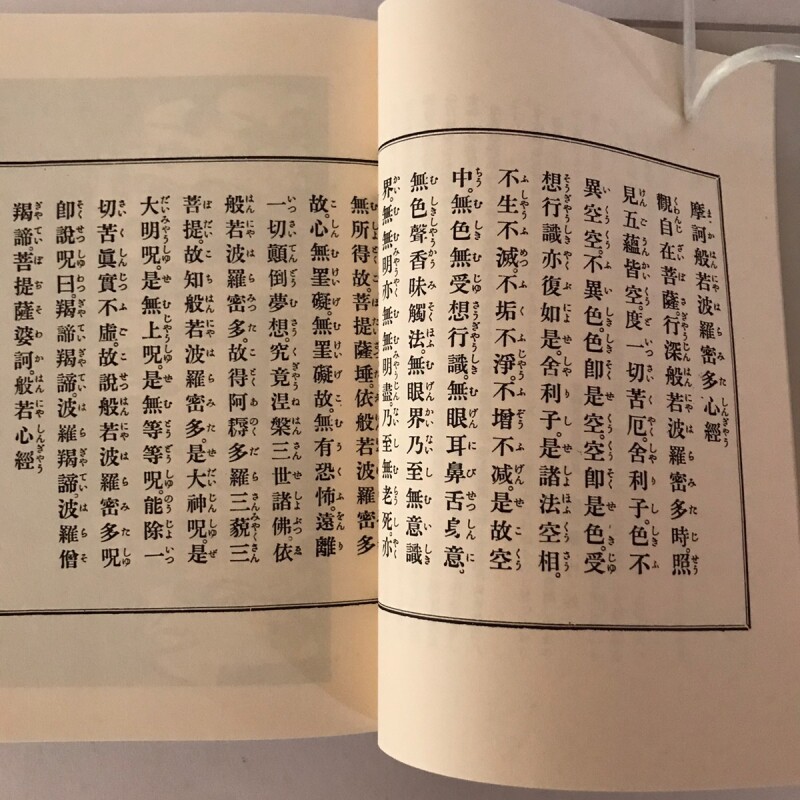 摩訶般若波羅密多心經
觀自在菩薩。行深般若波羅密多時。照
見五蘊皆空。度一切苦厄。舍利子。色不
異空。空不異色。色卽是空。空卽是色。受
想行識亦復如是。舍利子。是諸法空相。
不生不滅。不垢不淨。不增不减。是故空
中。無色無受想行識無眼耳鼻舌身意。
無色聲香味觸法。無眼界乃至無意識
界。無無明亦無無明盡。乃至無老死。亦
無所得故。菩提薩埵。依般若波羅密多
故。心無罣礙。無罣礙故。無有恐怖。遠離
一切顛倒夢想。究竟涅槃三世諸佛。依
般若波羅密多。故得阿耨多羅三藐三
菩提。故知般若波羅密多。是大神呪。是
大明呪。是無上呪。是無等等呪。能除一
切苦眞實不虛。故說般若波羅密多呪
卽說呪曰。羯諦羯諦。波羅羯諦。波羅僧
羯諦。菩提薩婆訶。般若心經